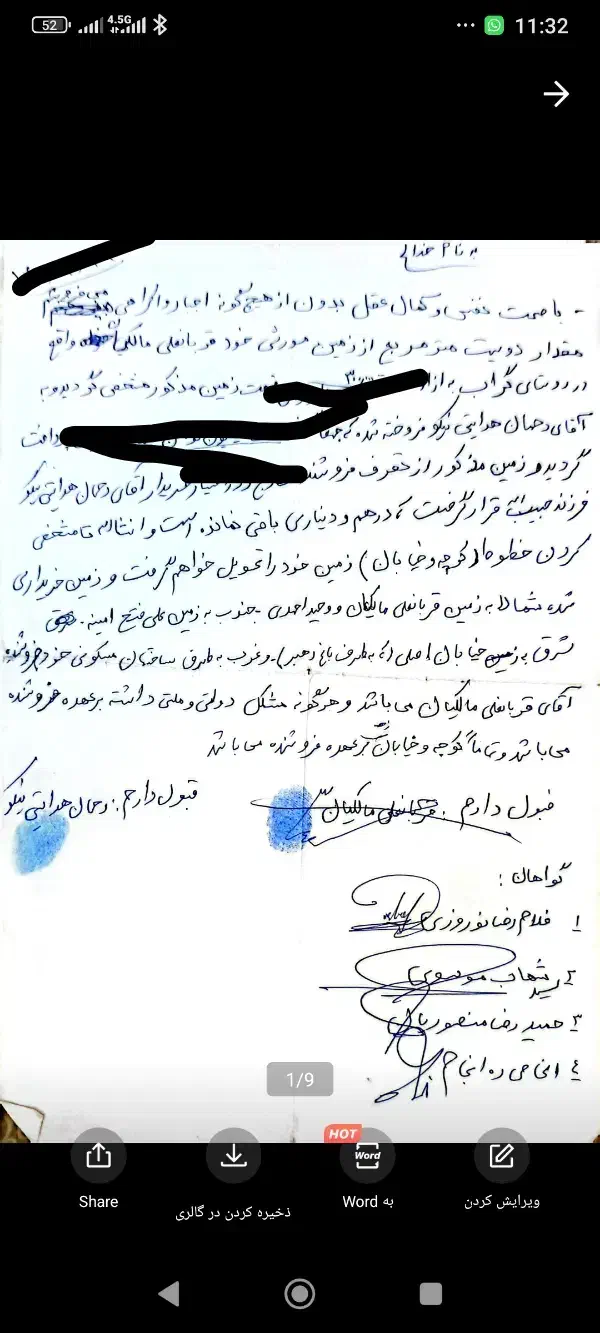 52
4.5G
11:32
به نام خدا
- با صحت نفس و کمال عقل بدون از هیچ گونه اجبار و اکراهی می فروشم
مقدار دویست متر مربع از زمین موروثی خود قربانعلی مالکیان واقع
در روستای گراب به ازاء زمین مذکور مشخص گردید و به
آقای رحمان هدایتی نیکو فروخته شد که
گردید و زمین مذکور از تصرف آقای رحمان هدایتی نیکو
فرزند حبیب الله قرار گرفت که درهم و دیناری باقی نمانده است و انشالله تا مشخص
کردن خطوط (کوچه و خیابان) زمین خود را تحویل خواهم گرفت و زمین خریداری
شده شمالا به زمین قربانعلی مالکیان و وحید احمدی - جنوب به زمین علی فتح امینه.
شرق به خیابان اصلی (که به طرف باغ رهبر) - و غرب به طرف ساختمان مسکونی خود فروشنده
آقای قربانعلی مالکیان می باشد و هر گونه مشکل دولتی و ملتی داشته بر عهده فروشنده
می باشد و تماماً کوچه و خیابان بر عهده فروشنده می باشد
قبول دارم: قربانعلی مالکیان
قبول دارم: رحمان هدایتی نیکو
گواهان:
۱ غلامرضا نوروزی
۲ سید شهاب موسوی
۳ حمید رضا منصوریان
٤
1/9
HOT
Word
Share
ذخیره کردن در گالری
به Word
ویرایش کردن